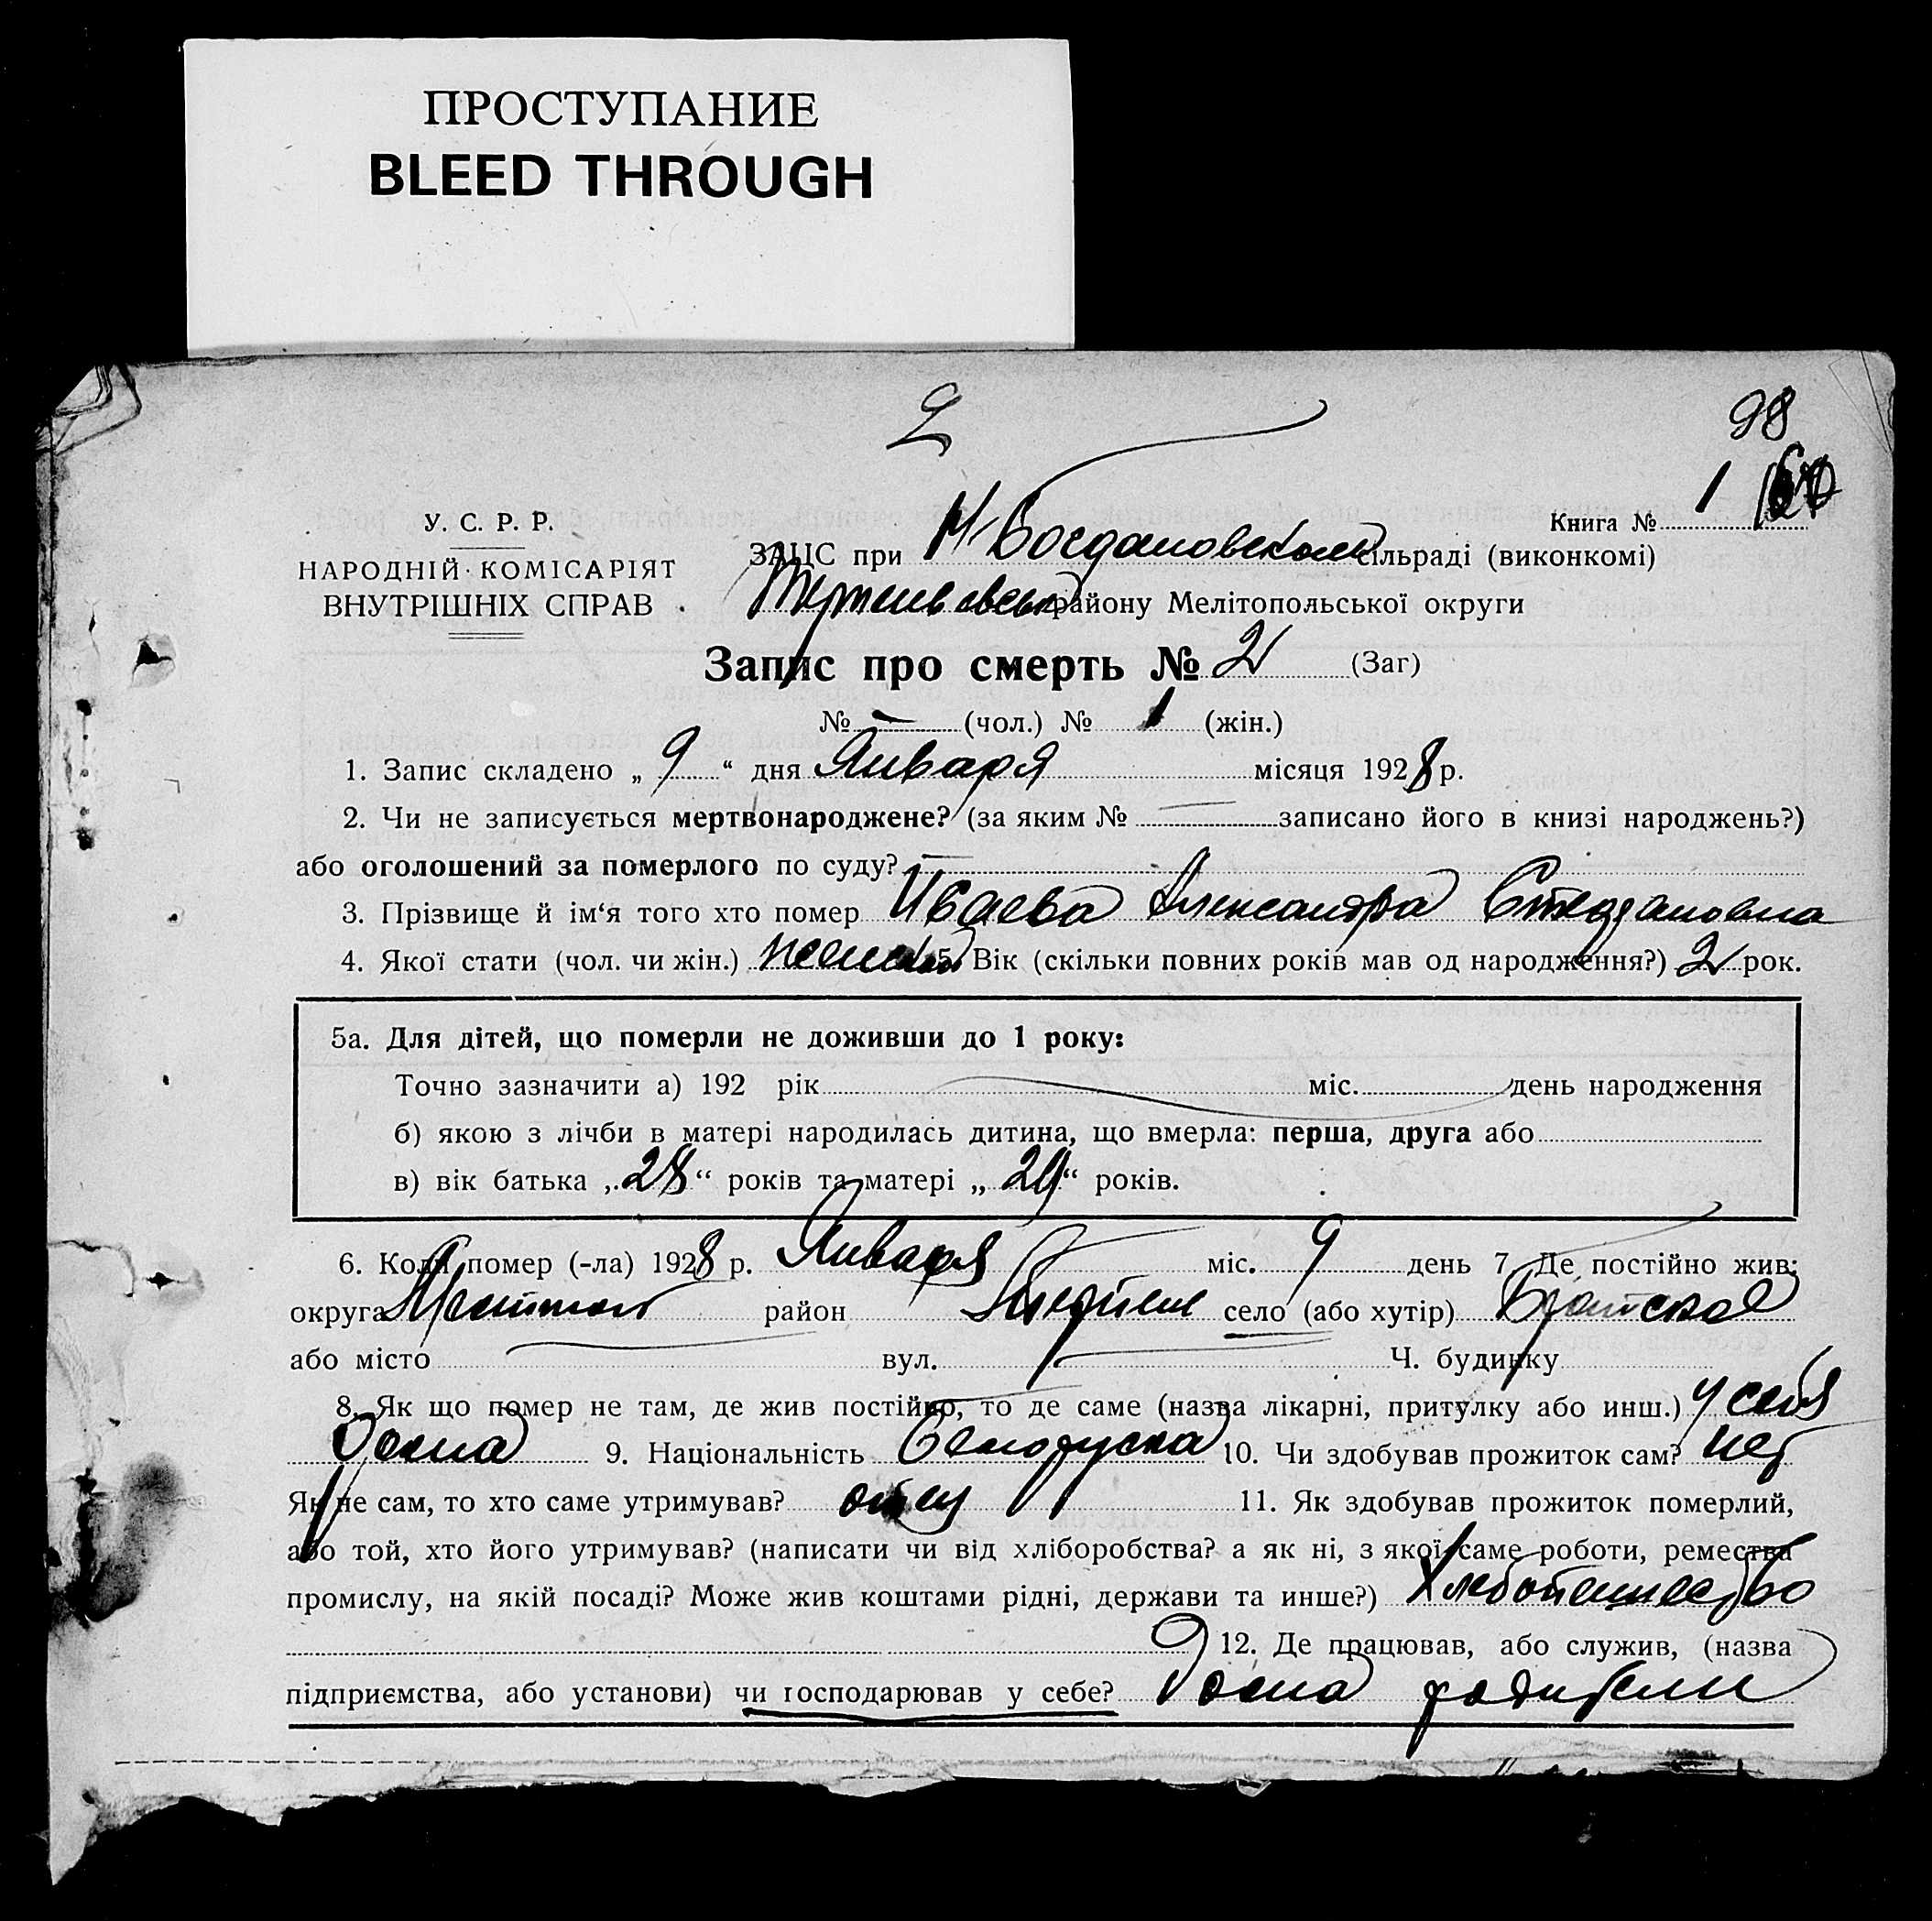 ПРОСТУПАНИЕ
BLEED THROUGH
2
98
У. С. Р. Р.
НАРОДНІЙ КОМІСАРІЯТ
ВНУТРІШНІХ СПРАВ
Книга № 1
ЗАЦС при М Богдановском сільраді (виконкомі)
району Мелітопольської округи
Запис про смерть № 2 (Заг)
№ — (чол.) № 1 (жін.)
1. Запис складено „ 9 “ дня Января місяця 1928 р.
2. Чи не записується мертвонароджене? (за яким № — записано його в книзі народжень?)
або оголошений за померлого по суду? —
3. Прізвище й ім‘я того хто помер Иваева Александра Стефановна
4. Якої стати (чол. чи жін.) женская 5. Вік (скільки повних років мав од народження?) 2 рок.
5а. Для дітей, що померли не доживши до 1 року:
Точно зазначити а) 192 рік міс. день народження
б) якою з лічби в матері народилась дитина, що вмерла: перша, друга або
в) вік батька „ 28 “ років та матері „ 29 “ років.
6. Коли помер (-ла) 1928 р. Января міс. 9 день 7. Де постійно жив:
округа район село (або хутір) Братское
або місто вул. Ч. будинку
8. Як що помер не там, де жив постійно, то де саме (назва лікарні, притулку або инш.) у себя
дома 9. Національність Белоруска 10. Чи здобував прожиток сам? нет
Як не сам, то хто саме утримував? отец 11. Як здобував прожиток померлий,
або той, хто його утримував? (написати чи від хліборобства? а як ні, з якої саме роботи, ремества
промислу, на якій посаді? Може жив коштами рідні, держави та инше?) Хлебопашество
12. Де працював, або служив, (назва
підприємства, або установи) чи господарював у себе? Дома родители